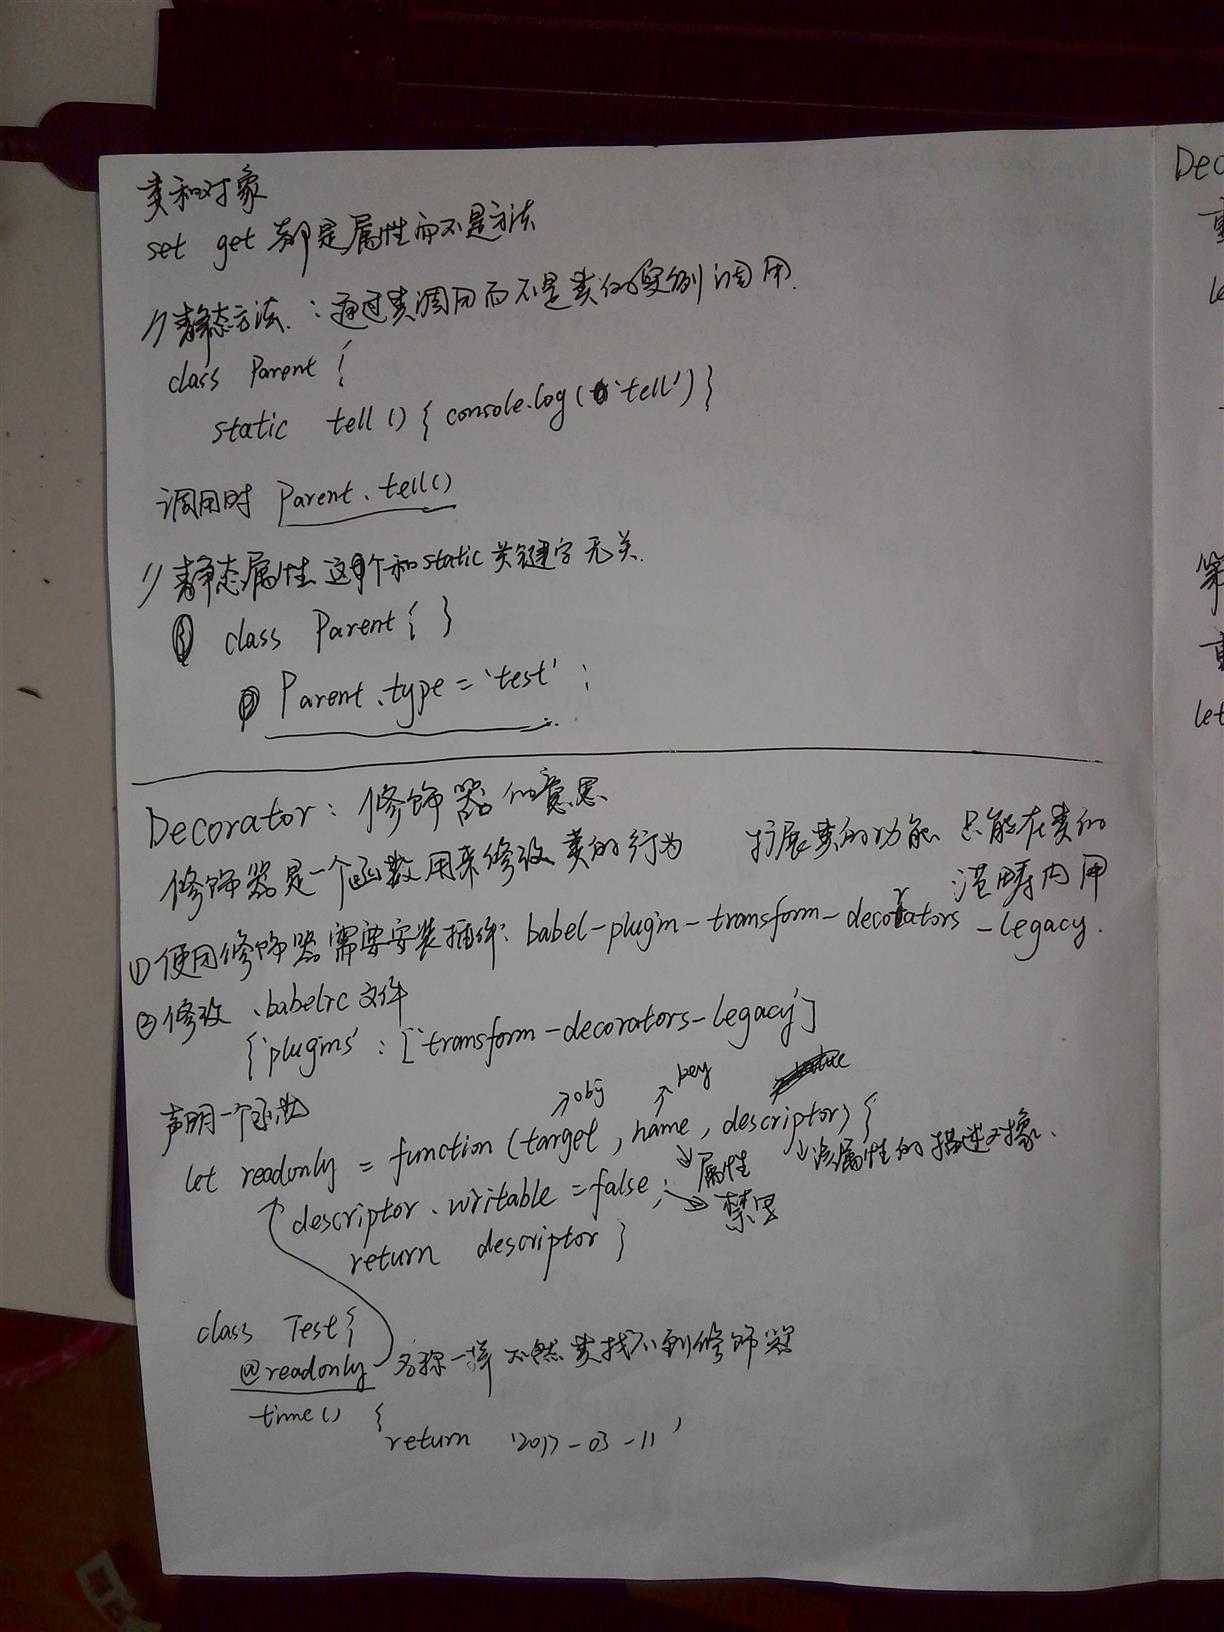 类和对象
set get 都是属性而不是方法
// 静态方法：通过类调用而不是类的实例调用.
class Parent {
static tell() { console.log('tell') }
调用时 Parent.tell()
// 静态属性 这个和static关键字无关.
① class Parent { }
② Parent.type = 'test' ;
Decorator: 修饰器的意思
修饰器是一个函数用来修改类的行为 扩展类的功能 只能在类的
范畴内用
① 使用修饰器需要安装插件: babel-plugin-transform-decorators-legacy.
② 修改 .babelrc 文件
{ 'plugins' : ['transform-decorators-legacy']
声明一个函数
obj key
let readonly = function (target, name, descriptor) {
属性 该属性的描述对象.
descriptor.writable = false;
return descriptor }
class Test {
@readonly 名称一样 不然类找不到修饰器
time() {
return '2017-03-11'
Dec
let